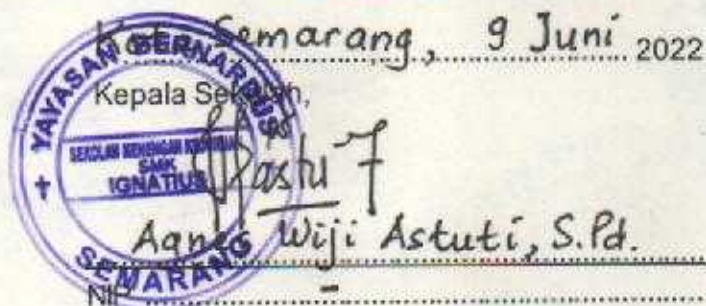 Kota Semarang, 9 Juni 2022
Kepala Sekolah,
YAYASAN BERNARDUS
SEKOLAH MENENGAH KEJURUAN
SMK
IGNATIUS
SEMARANG
Agnes Wiji Astuti, S.Pd.
NIP -